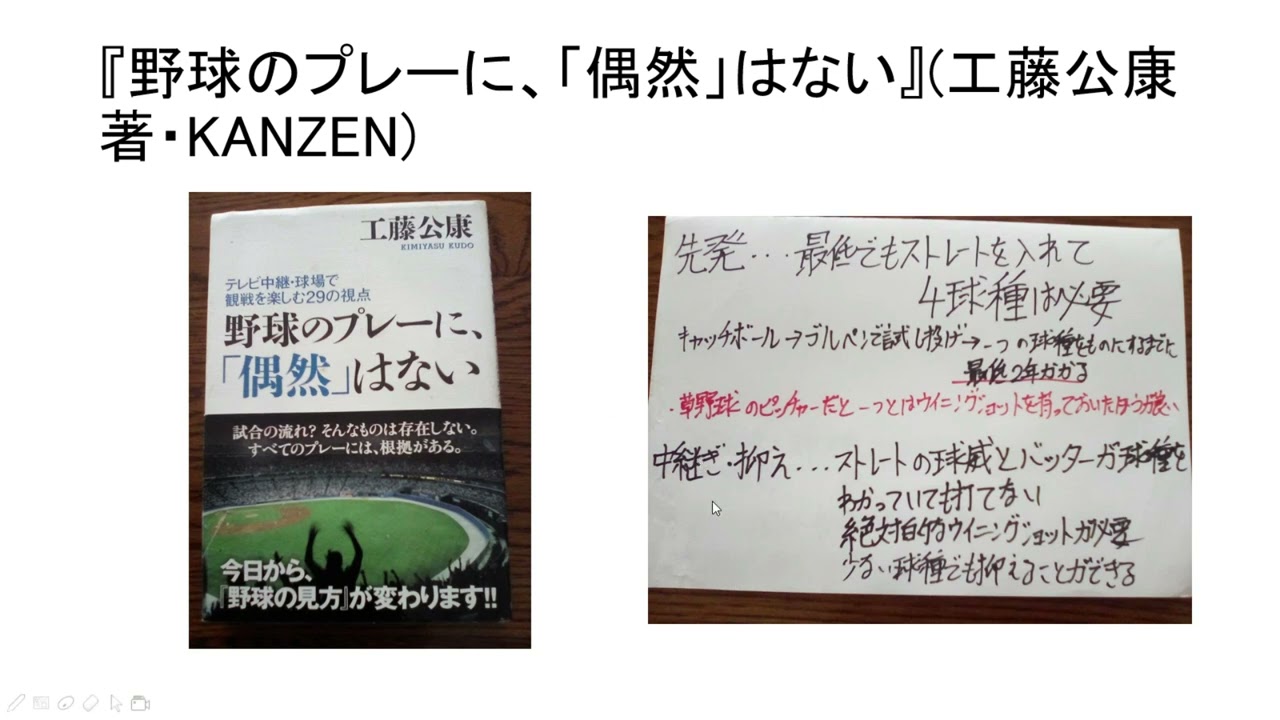 『野球のプレーに、「偶然」はない』(工藤公康
著・KANZEN)
工藤公康
KIMIYASU KUDO
テレビ中継・球場で
観戦を楽しむ29の視点
野球のプレーに、
「偶然」はない
試合の流れ?そんなものは存在しない。
すべてのプレーには、根拠がある。
今日から、
『野球の見方』が変わります!!
先発...最低でもストレートを入れて
4球種は必要
キャッチボール→ブルペンで試し投げ→一つの球種をものにするまでに
最低2年かかる
・草野球のピッチャーだと一つとはウイニングショットを持っておいたほうが良い
中継ぎ・抑え...ストレートの球威とバッターが球種を
わかっていても打てない
絶対的ウイニングショットが必要
少ない球種でも抑えることができる